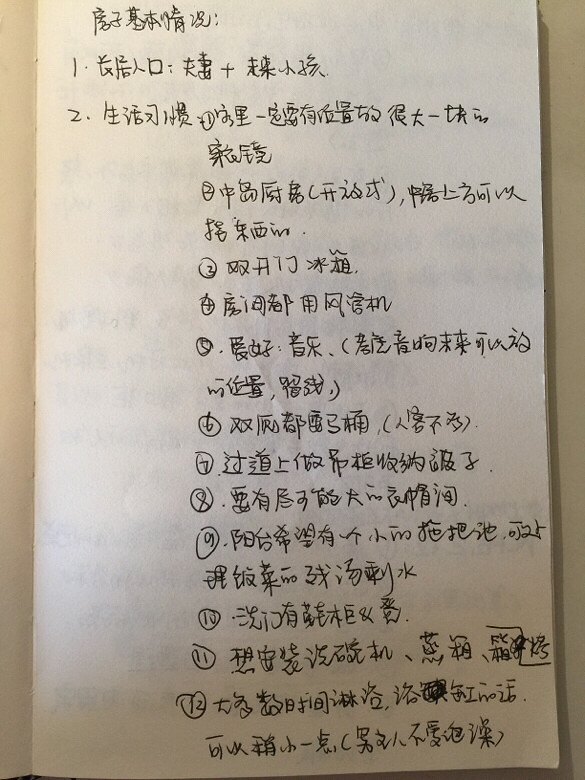 房子基本情况：
1. 长居人口：夫妻 + 未来小孩.
2. 生活习惯 ①家里一定要有位置放 很大一块的
穿衣镜
②中岛厨房(开放式)，中岛上方可以
挂东西的.
③ 双开门 冰箱.
④ 房间都用风管机
⑤. 爱好：音乐、(考虑音响未来可以放
的位置，留线，)
⑥ 双厕都要马桶，(人客不多).
⑦ 过道上做吊柜收纳被子.
⑧. 要有尽可能大的衣帽间.
⑨. 阳台希望有一个小的拖把池，可处
理饭菜的残汤剩水
⑩. 进门有鞋柜
⑪ 想安装洗碗机、蒸箱、烤箱
⑫ 大多数时间淋浴，浴缸的话.
可以稍小一点(男主人不爱泡澡)